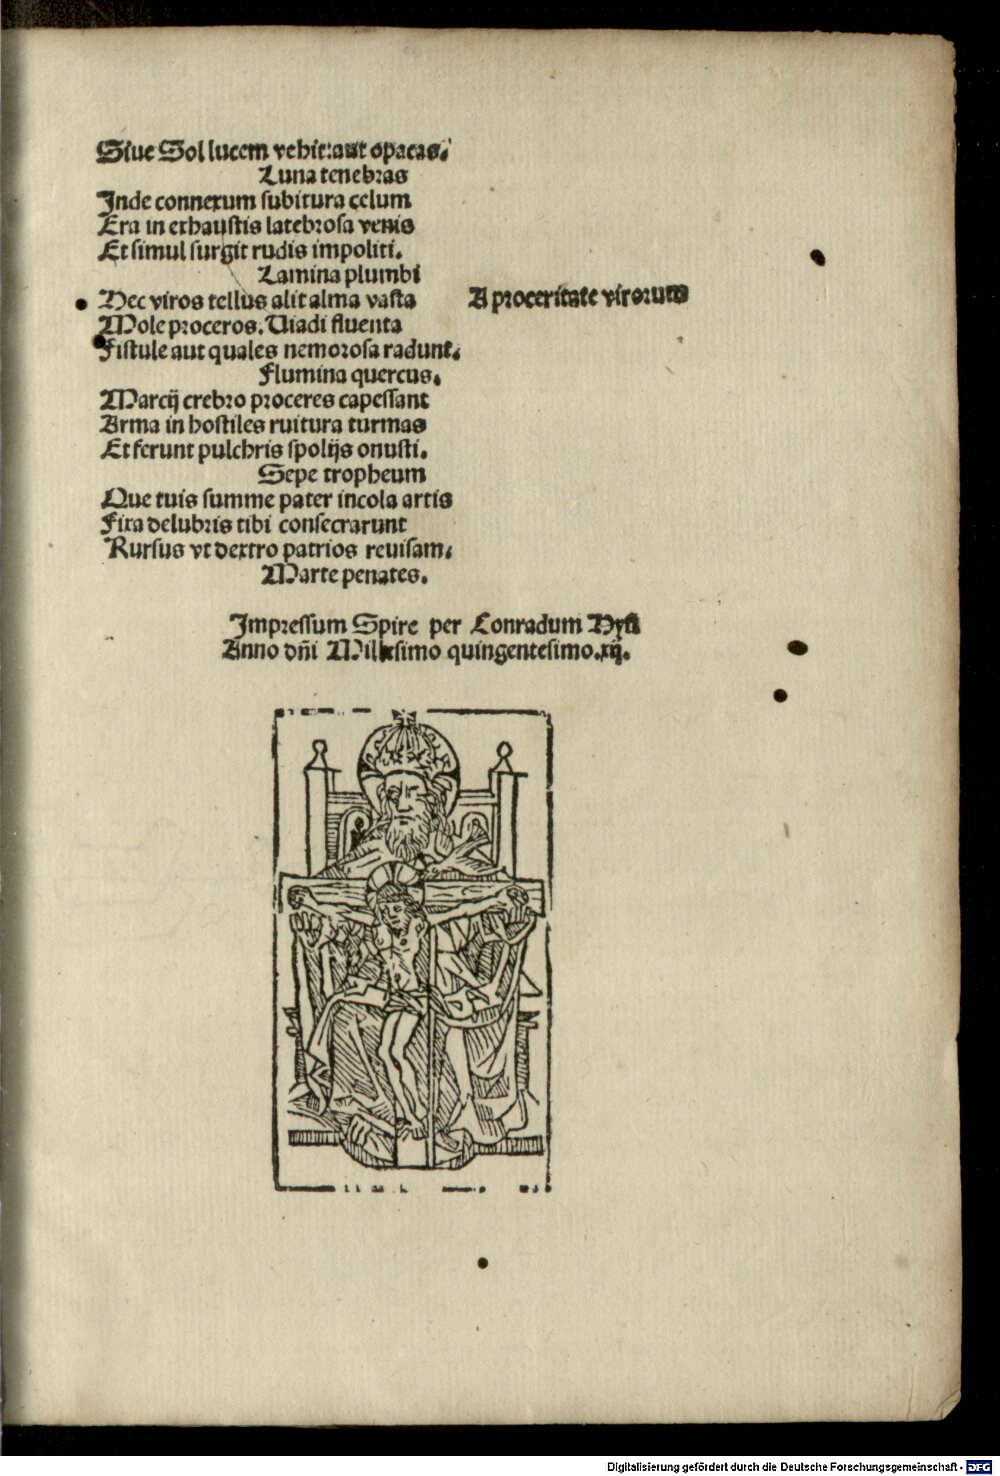 Siue Sol lucem vehit: aut opacas.
Luna tenebras
Inde connexum subitura cęlum
Era in exhaustis latebrosa venis
Et simul surgit rudis impoliti.
Lamina plumbi
Hec viros tellus alit alma vasta
A proceritate virorum
Mole proceros. Uiadi fluenta
Fistule aut quales nemorosa radunt.
Flumina quercus.
Marcij crebro proceres capessant
Arma in hostiles ruitura turmas
Et ferunt pulchris spolijs onusti.
Sepe tropheum
Que tuis summe pater incola artis
Fixa delubris tibi consecrarunt
Rursus vt dextro patrios reuisam.
Marte penates.
Impressum Spire per Conradum Hyst
Anno dn̄i Millesimo quingentesimo.xij.
Digitalisierung gefördert durch die Deutsche Forschungsgemeinschaft - DFG